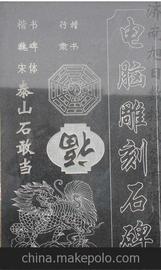 电脑雕刻石碑
楷书
行隶
福
书碑体
楷魏宋
泰山石敢当
china.makepolo.com